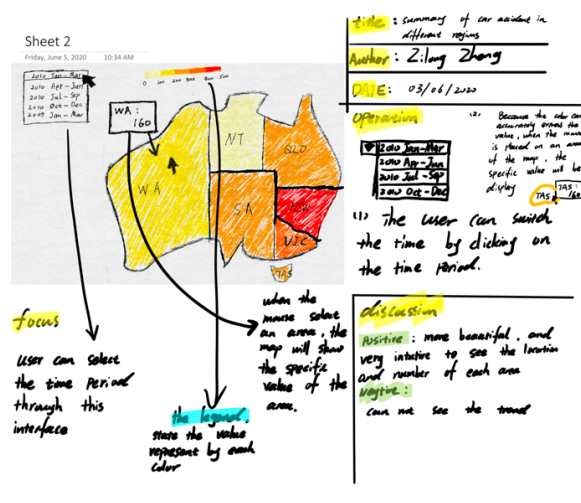 Sheet 2
Friday, June 5, 2020 10:34 AM
2010 Jan-Mar
2010 Apr-Jun
2010 Jul-Sep
2010 Oct-Dec
2009 Jan-Mar
0 100 200 300 400 500
WA :
160
WA
NT
QLD
SA
NSW
VIC
TAS
focus
user can select
the time period
through this
interface
the legend,
state the value
represent by each
color
when the
mouse select
an area, the
map will show
the specific
value of the
area.
title : summary of car accident in
different regions
Author : Zilong Zheng
DATE : 03/06/2020
Operation
2010 Jan-Mar
2010 Apr-Jun
2010 Jul-Sep
2010 Oct-Dec
(2) Because the color can
accurately
value, when the mouse
is placed on an area
of the map, the
specific value will be
display
TAS
TAS :
160
(1) The user can switch
the time by clicking on
the time period.
discussion
Positive : more beautiful, and
very intuitive to see the location
and number of each area
Negtive :
can not see the trend